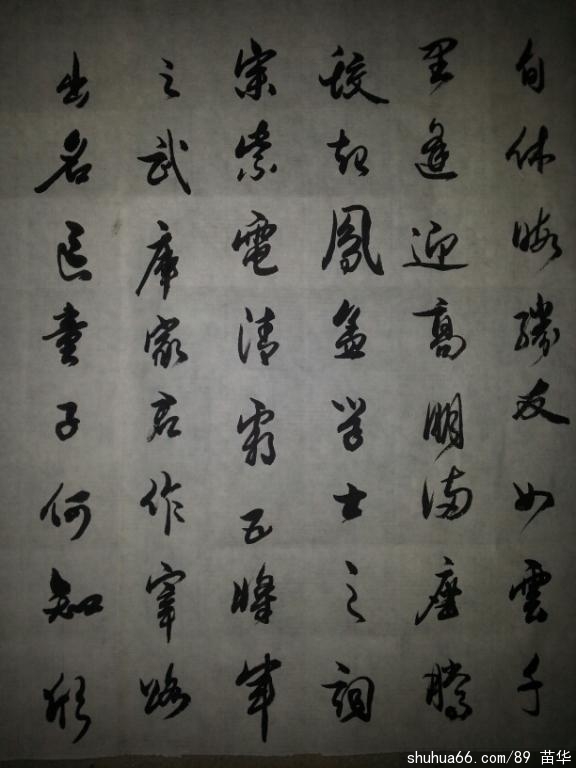 旬休暇勝友如雲千
里逢迎高朋滿座騰
蛟起鳳孟學士之詞
宗紫電清霜王將軍
之武庫家君作宰路
出名區童子何知躬
shuhua66.com/89 苗华